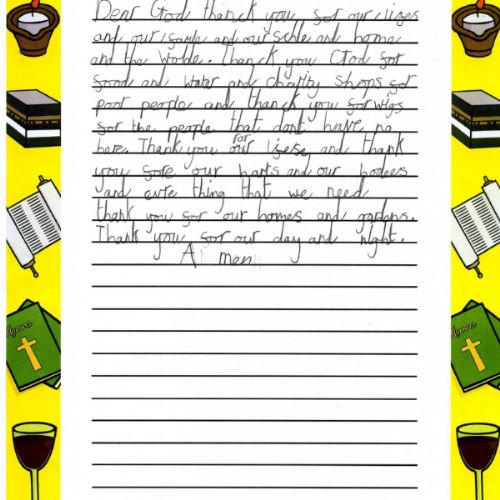 Dear God thanck you for our lifes
and our famle and our schle and home
and the wolde. Thanck you God for
food and water and charity shops for
poor people and thanck you for wigs
for the people that dont have no
here. Thank you for our lifese, and thank
you fore our harts and our bodees
and evre thing that we need
thank you for our homes and gardens.
Thank you for our day and night.
A men
Hymns
Hymns